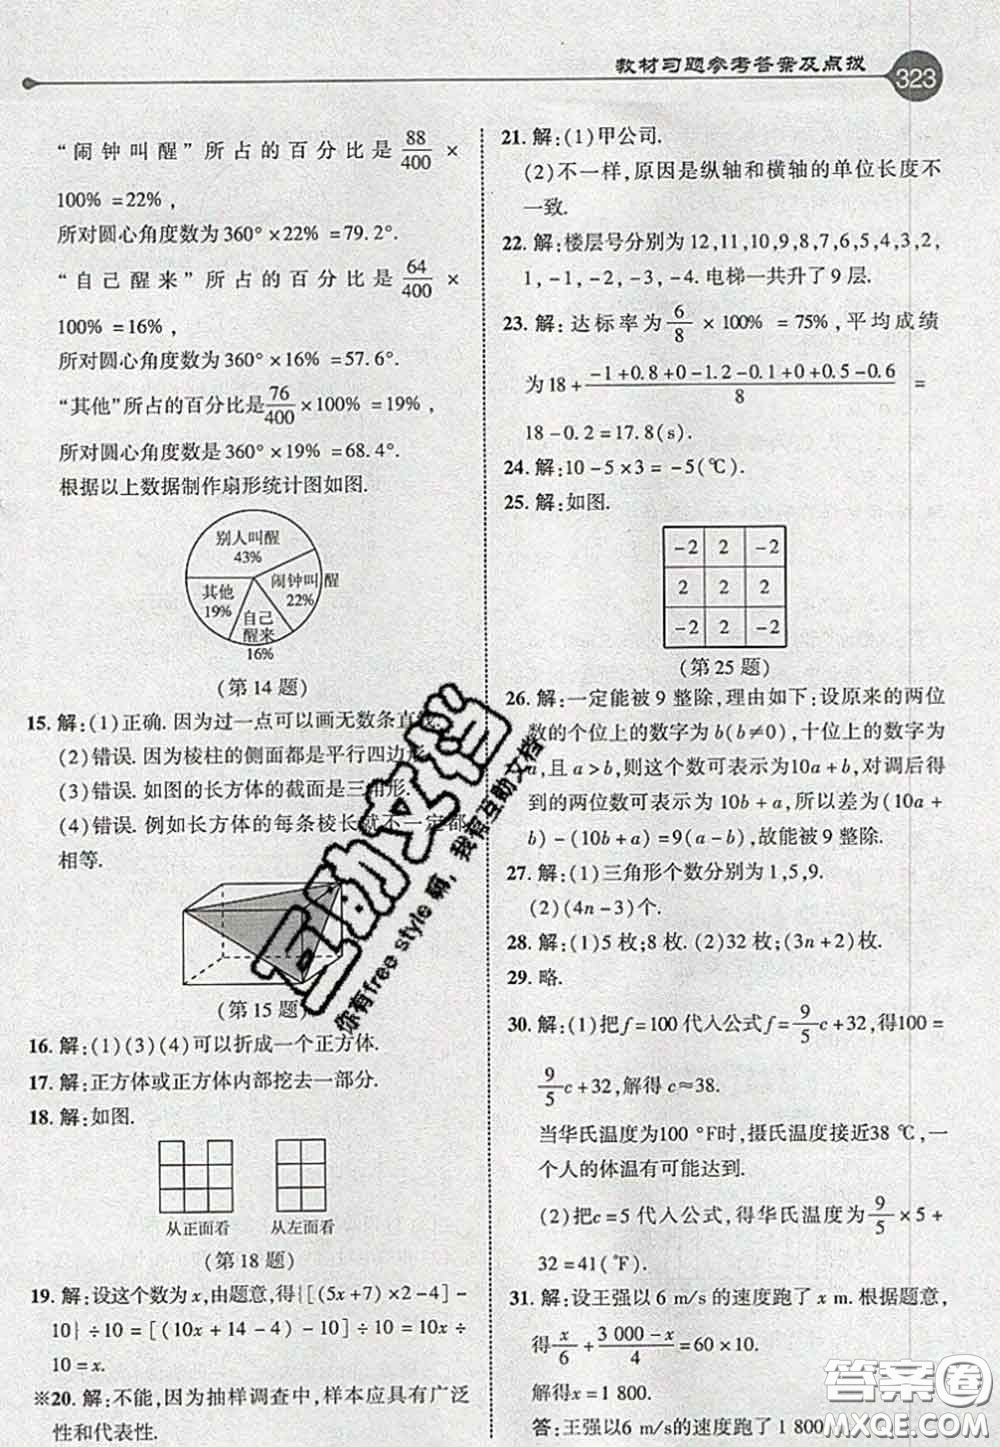 教材习题参考答案及点拨 323
“闹钟叫醒”所占的百分比是 88/400 ×
100% =22%,
所对圆心角度数为 360° ×22% =79.2°.
“自己醒来”所占的百分比是 64/400 ×
100% =16%,
所对圆心角度数为 360° ×16% =57.6°.
“其他”所占的百分比是 76/400 ×100% =19%,
所对圆心角度数是 360° ×19% =68.4°.
根据以上数据制作扇形统计图如图.
别人叫醒
43%
闹钟叫醒
22%
其他
19%
自己
醒来
16%
(第 14 题)
15. 解:(1)正确. 因为过一点可以画无数条直线.
(2)错误. 因为棱柱的侧面都是平行四边形.
(3)错误. 如图的长方体的截面是三角形.
(4)错误. 例如长方体的每条棱长就不一定都
相等.
(第 15 题)
16. 解:(1)(3)(4)可以折成一个正方体.
17. 解:正方体或正方体内部挖去一部分.
18. 解:如图.
从正面看 从左面看
(第 18 题)
19. 解:设这个数为 x,由题意,得{[(5x+7)×2-4]-
10}÷10=[(10x+14-4)-10]÷10=10x÷
10=x.
※20. 解:不能,因为抽样调查中,样本应具有广泛
性和代表性.
21. 解:(1)甲公司.
(2)不一样,原因是纵轴和横轴的单位长度不
一致.
22. 解:楼层号分别为 12,11,10,9,8,7,6,5,4,3,2,
1,-1,-2,-3,-4. 电梯一共升了 9 层.
23. 解:达标率为 6/8 ×100% =75%,平均成绩
为 18+ (-1+0.8+0-1.2-0.1+0+0.5-0.6)/8 =
18-0.2=17.8(s).
24. 解:10-5×3=-5(℃).
25. 解:如图.
-2 2 -2
2 2 2
-2 2 -2
(第 25 题)
26. 解:一定能被 9 整除,理由如下:设原来的两位
数的个位上的数字为 b(b≠0),十位上的数字为
a,且 a>b,则这个数可表示为10a+b,对调后得
到的两位数可表示为 10b+a,所以差为(10a+
b)-(10b+a)=9(a-b),故能被 9 整除.
27. 解:(1)三角形个数分别为 1,5,9.
(2)(4n-3)个.
28. 解:(1)5 枚;8 枚. (2)32 枚;(3n+2)枚.
29. 略.
30. 解:(1)把 f=100 代入公式 f= 9/5 c+32,得100=
9/5 c+32,解得 c≈38.
当华氏温度为100 °F时,摄氏温度接近38 ℃,一
个人的体温有可能达到.
(2)把c=5 代入公式,得华氏温度为 9/5 ×5+
32=41(°F).
31. 解:设王强以6 m/s 的速度跑了 x m. 根据题意,
得 x/6 + (3 000-x)/4 =60×10.
解得x=1 800.
答:王强以6 m/s的速度跑了 1 800
互助文档
你有free style 嗬, 我有互助文档
答案圈
MXQE.COM